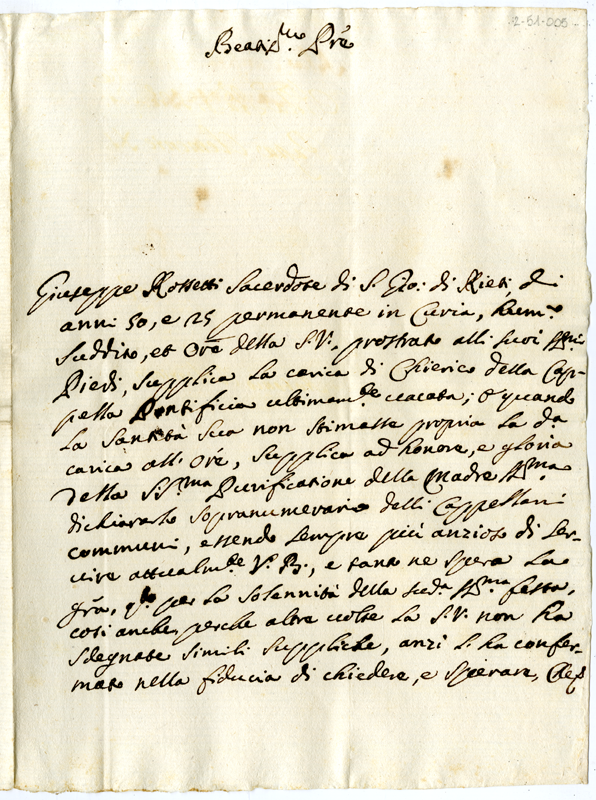 2-51-005
Beatis.mo Prē
Giuseppe Rossetti Sacerdote di S. Gio: di Rieti di
anni 50, e 25 permanente in Curia, hum.o
Suddito, et Orē della S.V., prostrato alli suoi SS.mi
Piedi, supplica la carica di Chierico della Cap-
pella Pontificia ultimam.te vacata; e quando
la Santità Sua non stimasse propria la d.a
carica all'Orē, supplica ad honore, e gloria
della SS.ma Purificatione della Madre SS.ma
dichiararlo sopranumerario delli Cappellani
communi, essendo sempre più anzioso di ser-
vire attualm.te V. B., e tanto ne spera la
grā, q.to per la solennità della sud.a SS.ma festa,
così anche, perche altre volte la S.V. non ha
sdegnate simili suppliche, anzi l'ha confer-
mato nella fiducia di chiedere, e sperare, Che